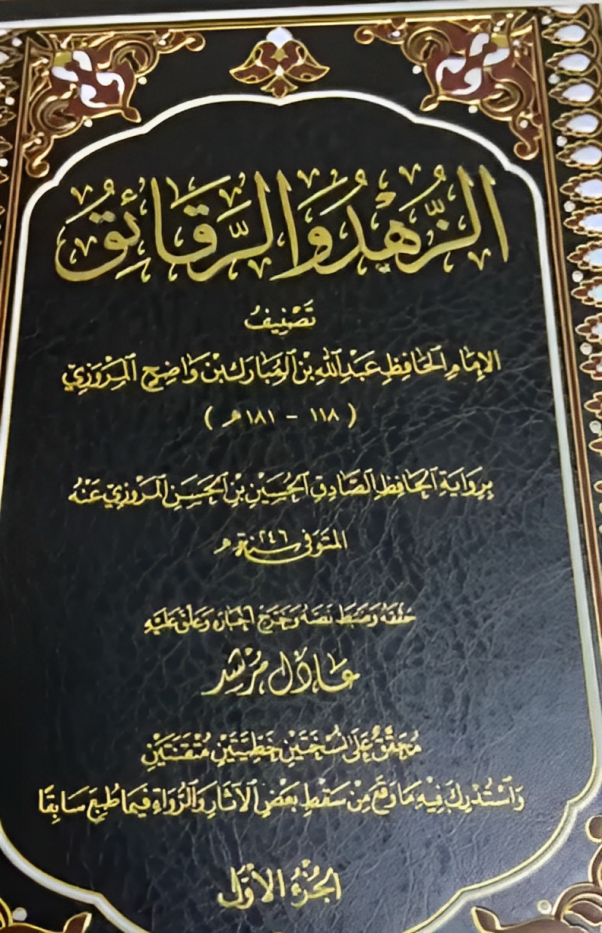 الزُّهْدُ وَالرَّقَائِقُ
تَصْنِيفُ
الإِمَامِ الحَافِظِ عَبْدِ اللهِ بْنِ المُبَارَك بْنِ وَاضِحٍ المَرْوَزِيِّ
( ١١٨ - ١٨١ هـ )
بِرِوَايَةِ الحَافِظِ الصَّادِقِ الحُسَيْنِ بْنِ الحَسَنِ المَرْوَزِيِّ عَنْهُ
المتَوَفَّى سَنَة ٢٤٦ هـ
حَقَّقَهُ وَضَبَطَ نَصَّهُ وَخَرَّجَ أَخْبَارَهُ وَعَلَّقَ عَلَيْهِ
عَادِل مُرْشِد
مُحَقَّقٌ عَلَى نُسْخَتَيْنِ خَطِّيَّتَيْنِ مُتْقَنَتَيْنِ
وَاسْتُدْرِكَ فِيهِ مَا وَقَعَ مِنْ سَقْطِ بَعْضِ الآثَارِ وَالرُّوَاةِ فِيمَا طُبِعَ سَابِقًا
الجُزْءُ الأَوَّل